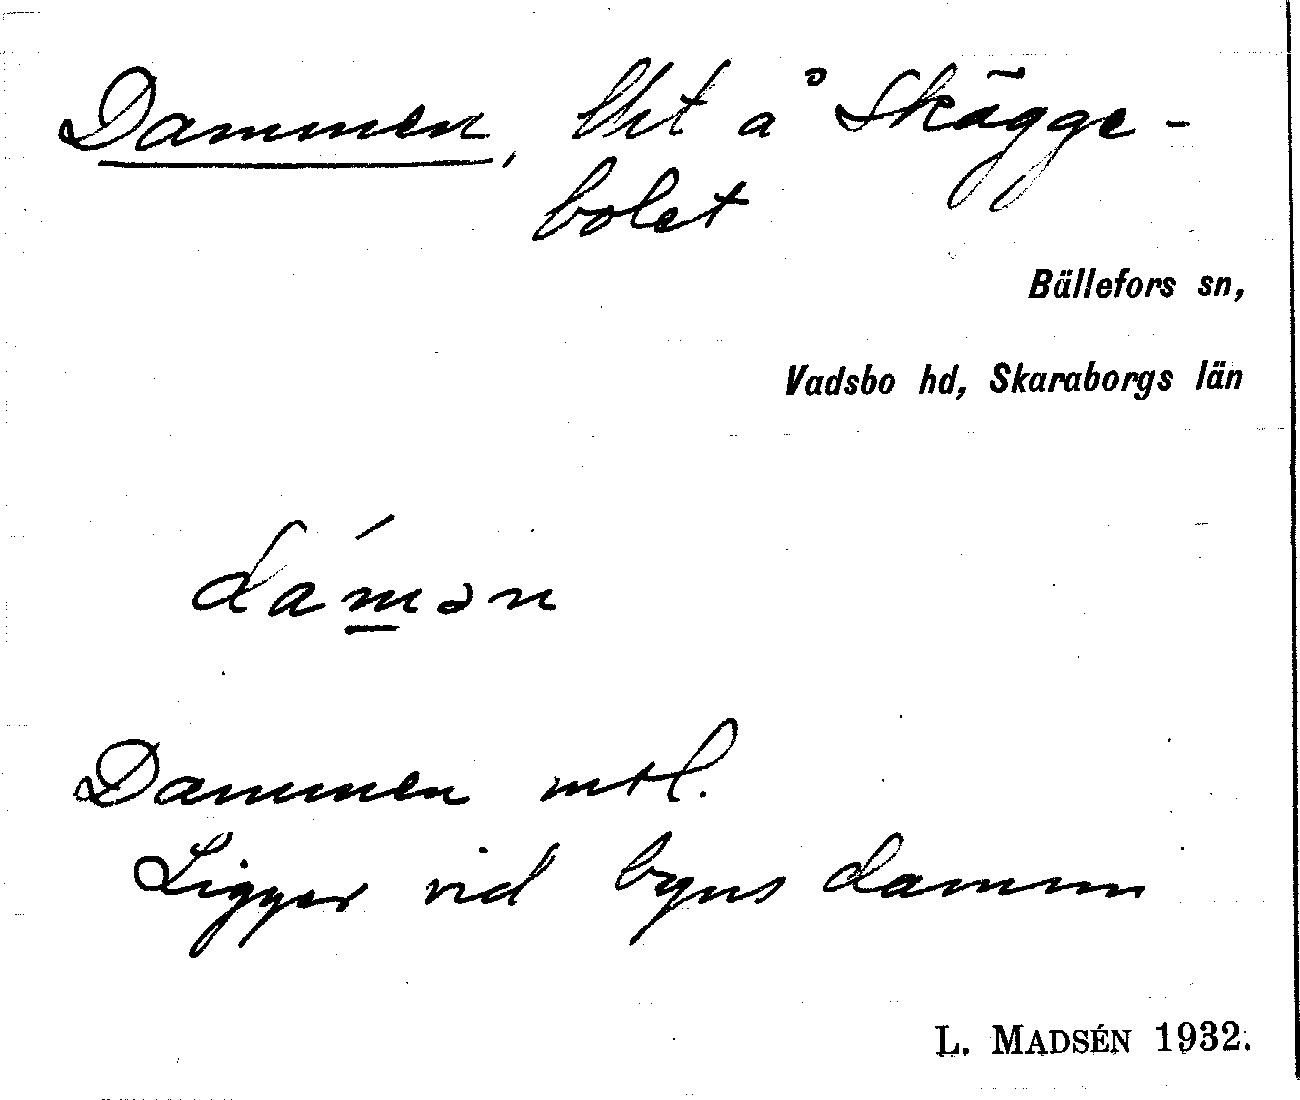 Dammen, lht å Skägge-
bolet
Bällefors sn,
Vadsbo hd, Skaraborgs län
dámən
Dammen mtl.
Ligger vid byns damm
L. MADSÉN 1932.